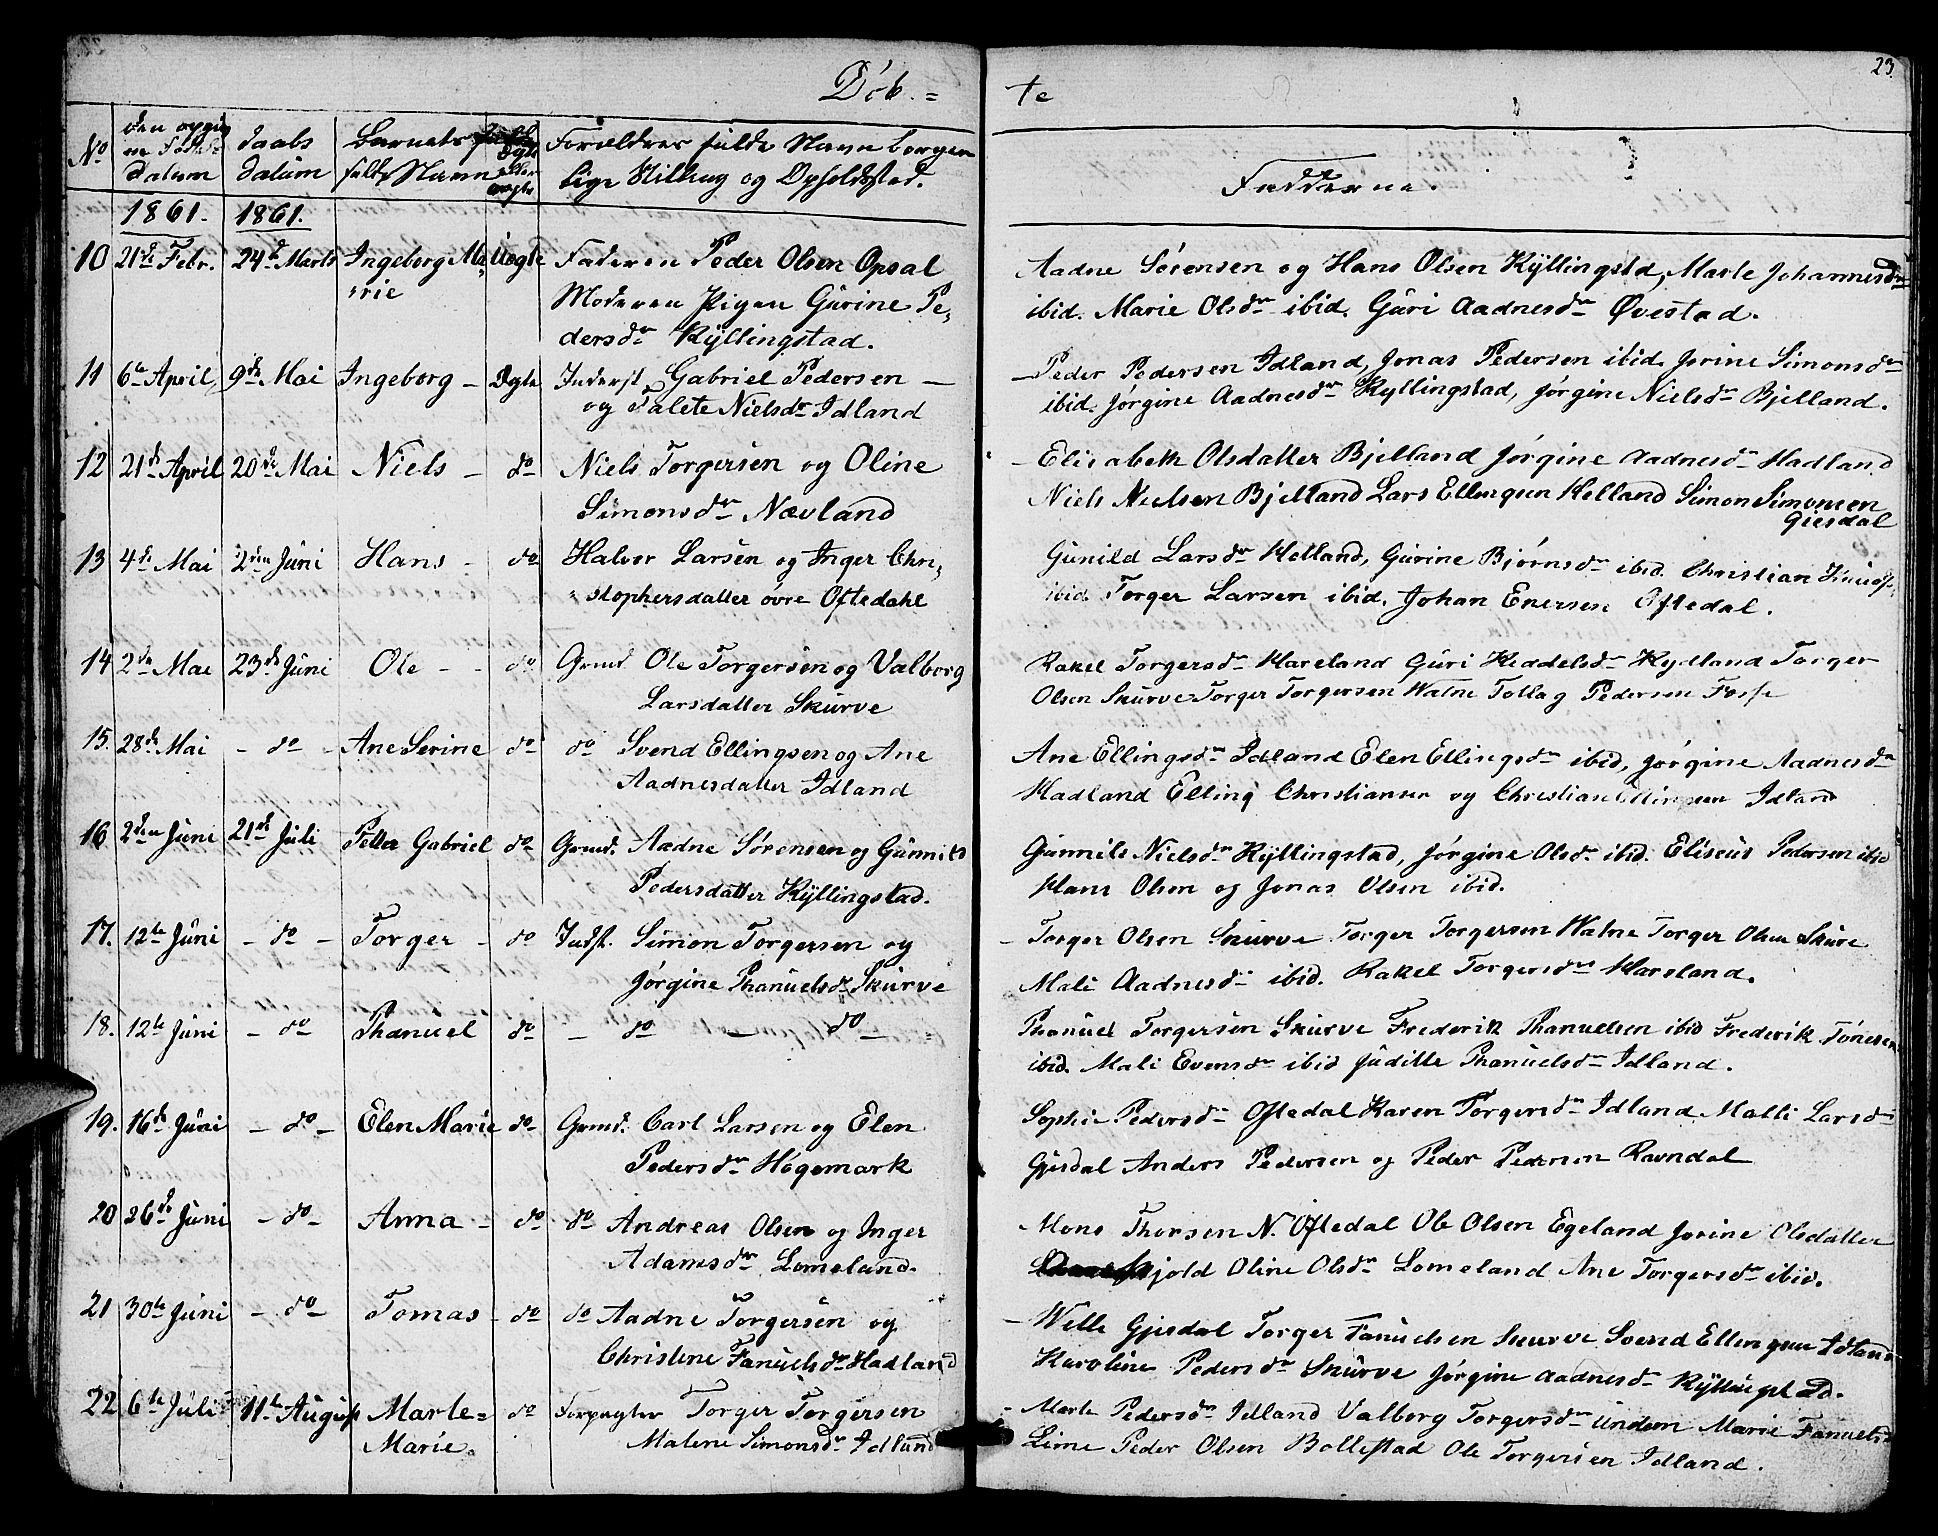 Döb = te
23
No den opgivne Fødselsdatum Daabs datum Barnets fulde Navn Ægte eller uægte Forældres fulde Navn borgerlige Stilling og Opholdssted.
Fadderne.
1861. 1861.
10 21de Febr. 24de Marts Ingeborg Ma- Uægte Faderen Peder Olsen Opsal
rie Moderen Pigen Gurine Pe-
dersdr Kyllingstad.
Aadne Sörensen og Hans Olsen Kyllingstd, Marte Johannesdr
ibid. Marie Olsdr ibid. Guri Aadnesdr Øvestad.
11 6te April 9de Mai Ingeborg - Ægte Inderst Gabriel Pedersen -
og Talete Nielsdr Idland
Peder Pedersen Idland, Jonas Pedersen ibid. Jorine Simonsdr
ibid. Jörgine Aadnesdr Kyllingstad, Jørgine Nielsdr Bjelland.
12 21de April 20de Mai Niels - do Niels Torgersen og Oline
Simonsdr Nævland
Elisabeth Olsdatter Bjelland Jörgine Aadnesdr Hadland
Niels Nielsen Bjelland Lars Ellingsen Helland Simon Simonsen
Giesdal
13 4de Mai 2den Juni Hans - do Halvor Larsen og Inger Chri-
stophersdatter övre Oftedahl
Gunild Larsdr Helland, Gurine Bjørnsdr ibid. Christian
ibid. Torger Larsen ibid. Johan Enersen Oftedal.
14 2den Mai 23de Juni Ole - - do Grmd. Ole Torgersen og Valborg
Larsdatter Skurve
Rakel Torgersdr Hareland Guri Keddelsdr Kydland Torger
Olsen Skurve Torger Torgersen Watne Tollag Pedersen Fosse
15. 28de Mai - do - Ane Serine do do Svend Ellingsen og Ane
Aadnesdatter Idland
Ane Ellingsdr Idland Elen Ellingsdr ibid, Jørgine Aadnesdr
Hadland Elling Christiansen og Christian Ellingsen Idland
16 2den Juni 21de Juli Petter Gabriel do Grmd. Aadne Sørensen og Gunnild
Pedersdatter Kyllingstad.
Gunnild Nielsdr Kyllingstad, Jørgine Olsdr ibid. Eliseus Pedersen ibid
Hans Olsen og Jonas Olsen ibid.
17. 12te Juni - do - Torger - do Indst. Simon Torgersen og
Jørgine Phanuelsdr Skurve
Torger Olsen Skurve Torger Torgersen Watne Torger Olsen Skurve
Mali Aadnesdr ibid. Rakel Torgersdr Hareland.
18. 12te Juni - do Phanuel do - do - do -
Phanuel Torgersen Skurve Frederik Phanuelsen ibid Frederik Tönesen
ibid. Mali Evensdr ibid Juditte Phanuelsdr Idland.
19. 16de Juni - do - Elen Marie do Grmd. Carl Larsen og Elen
Pedersdr Högemark
Sophie Pedersdr Oftedal Karen Torgersdr Idland Malli Larsdr
Gjesdal Anders Pedersen og Peder Pedersen Ravndal
20 26de Juni - do - Anna - do do Andreas Olsen og Inger
Adamsdr Lomeland.
Mons Thorsen N. Oftedal Ole Olsen Egeland Jorine Olsdatter
Skjold Oline Olsdr Lomeland Ane Torgersdr ibid.
21 30te Juni - do - Tomas - do do Aadne Torgersen og
Christine Fanuelsdr Hadland
Welle Gjesdal Torger Fanuelsen Skurve Svend Ellingsen Idland
Karoline Pedersdr Skurve Jørgine Aadnesdr Kyllingstad.
22 6te Juli 11te August Marte= do Forpagter Torger Torgersen
Marie. Malene Simonsdr Idland
Marte Pedersdr Idland Valborg Torgersdr Undem Marie Fanuelsd
Lime Peder Olsen Bollestad Ole Torgersen Idland.